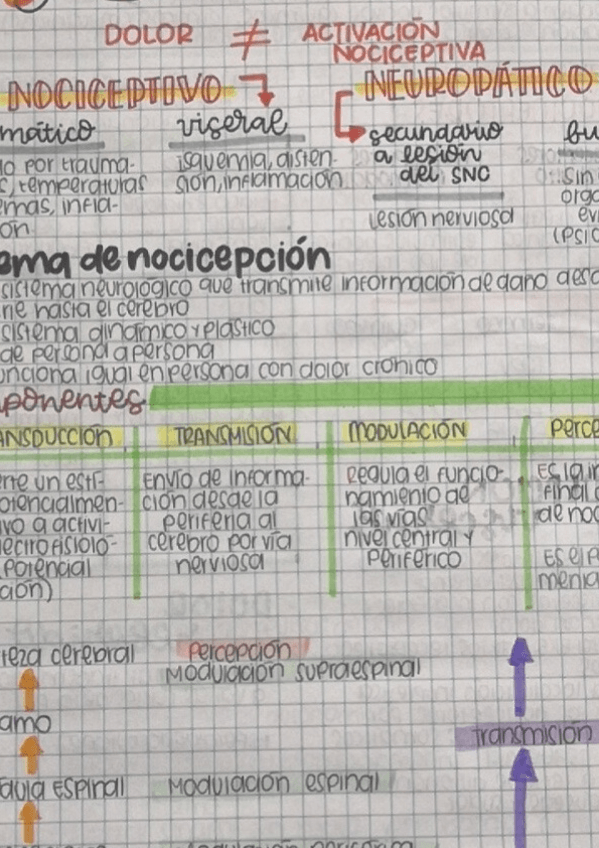 DOLOR ≠ ACTIVACIÓN
NOCICEPTIVA
NOCICEPTIVO
NEUROPÁTICO
mático
viseral
secundario
a lesión
del SNC
fu
lo por trauma-
s, temperaturas
emas, infla-
ón
isquemia, disten-
sión, inflamación
Lesión nerviosa
sin
orga
evi
(psic
ema de nocicepción
sistema neurológico que transmite información de daño desd
rie hasta el cerebro
sistema dinámico y plástico
de persona a persona
unciona igual en persona con dolor crónico
ponentes
ANSDUCCIÓN
TRANSMISIÓN
MODULACIÓN
PERCE
erte un estí-
otencialmen-
vo a activi-
lectrofisioló-
potencial
ión)
Envío de informa-
ción desde la
periferia al
cerebro por vía
nerviosa
Regula el funcio-
namiento de
las vías
nivel central y
periférico
Es la in
final d
de noc
Es el p
menta
teza cerebral
Percepción
Modulación supraespinal
amo
Transmisión
dula Espinal
Modulación espinal